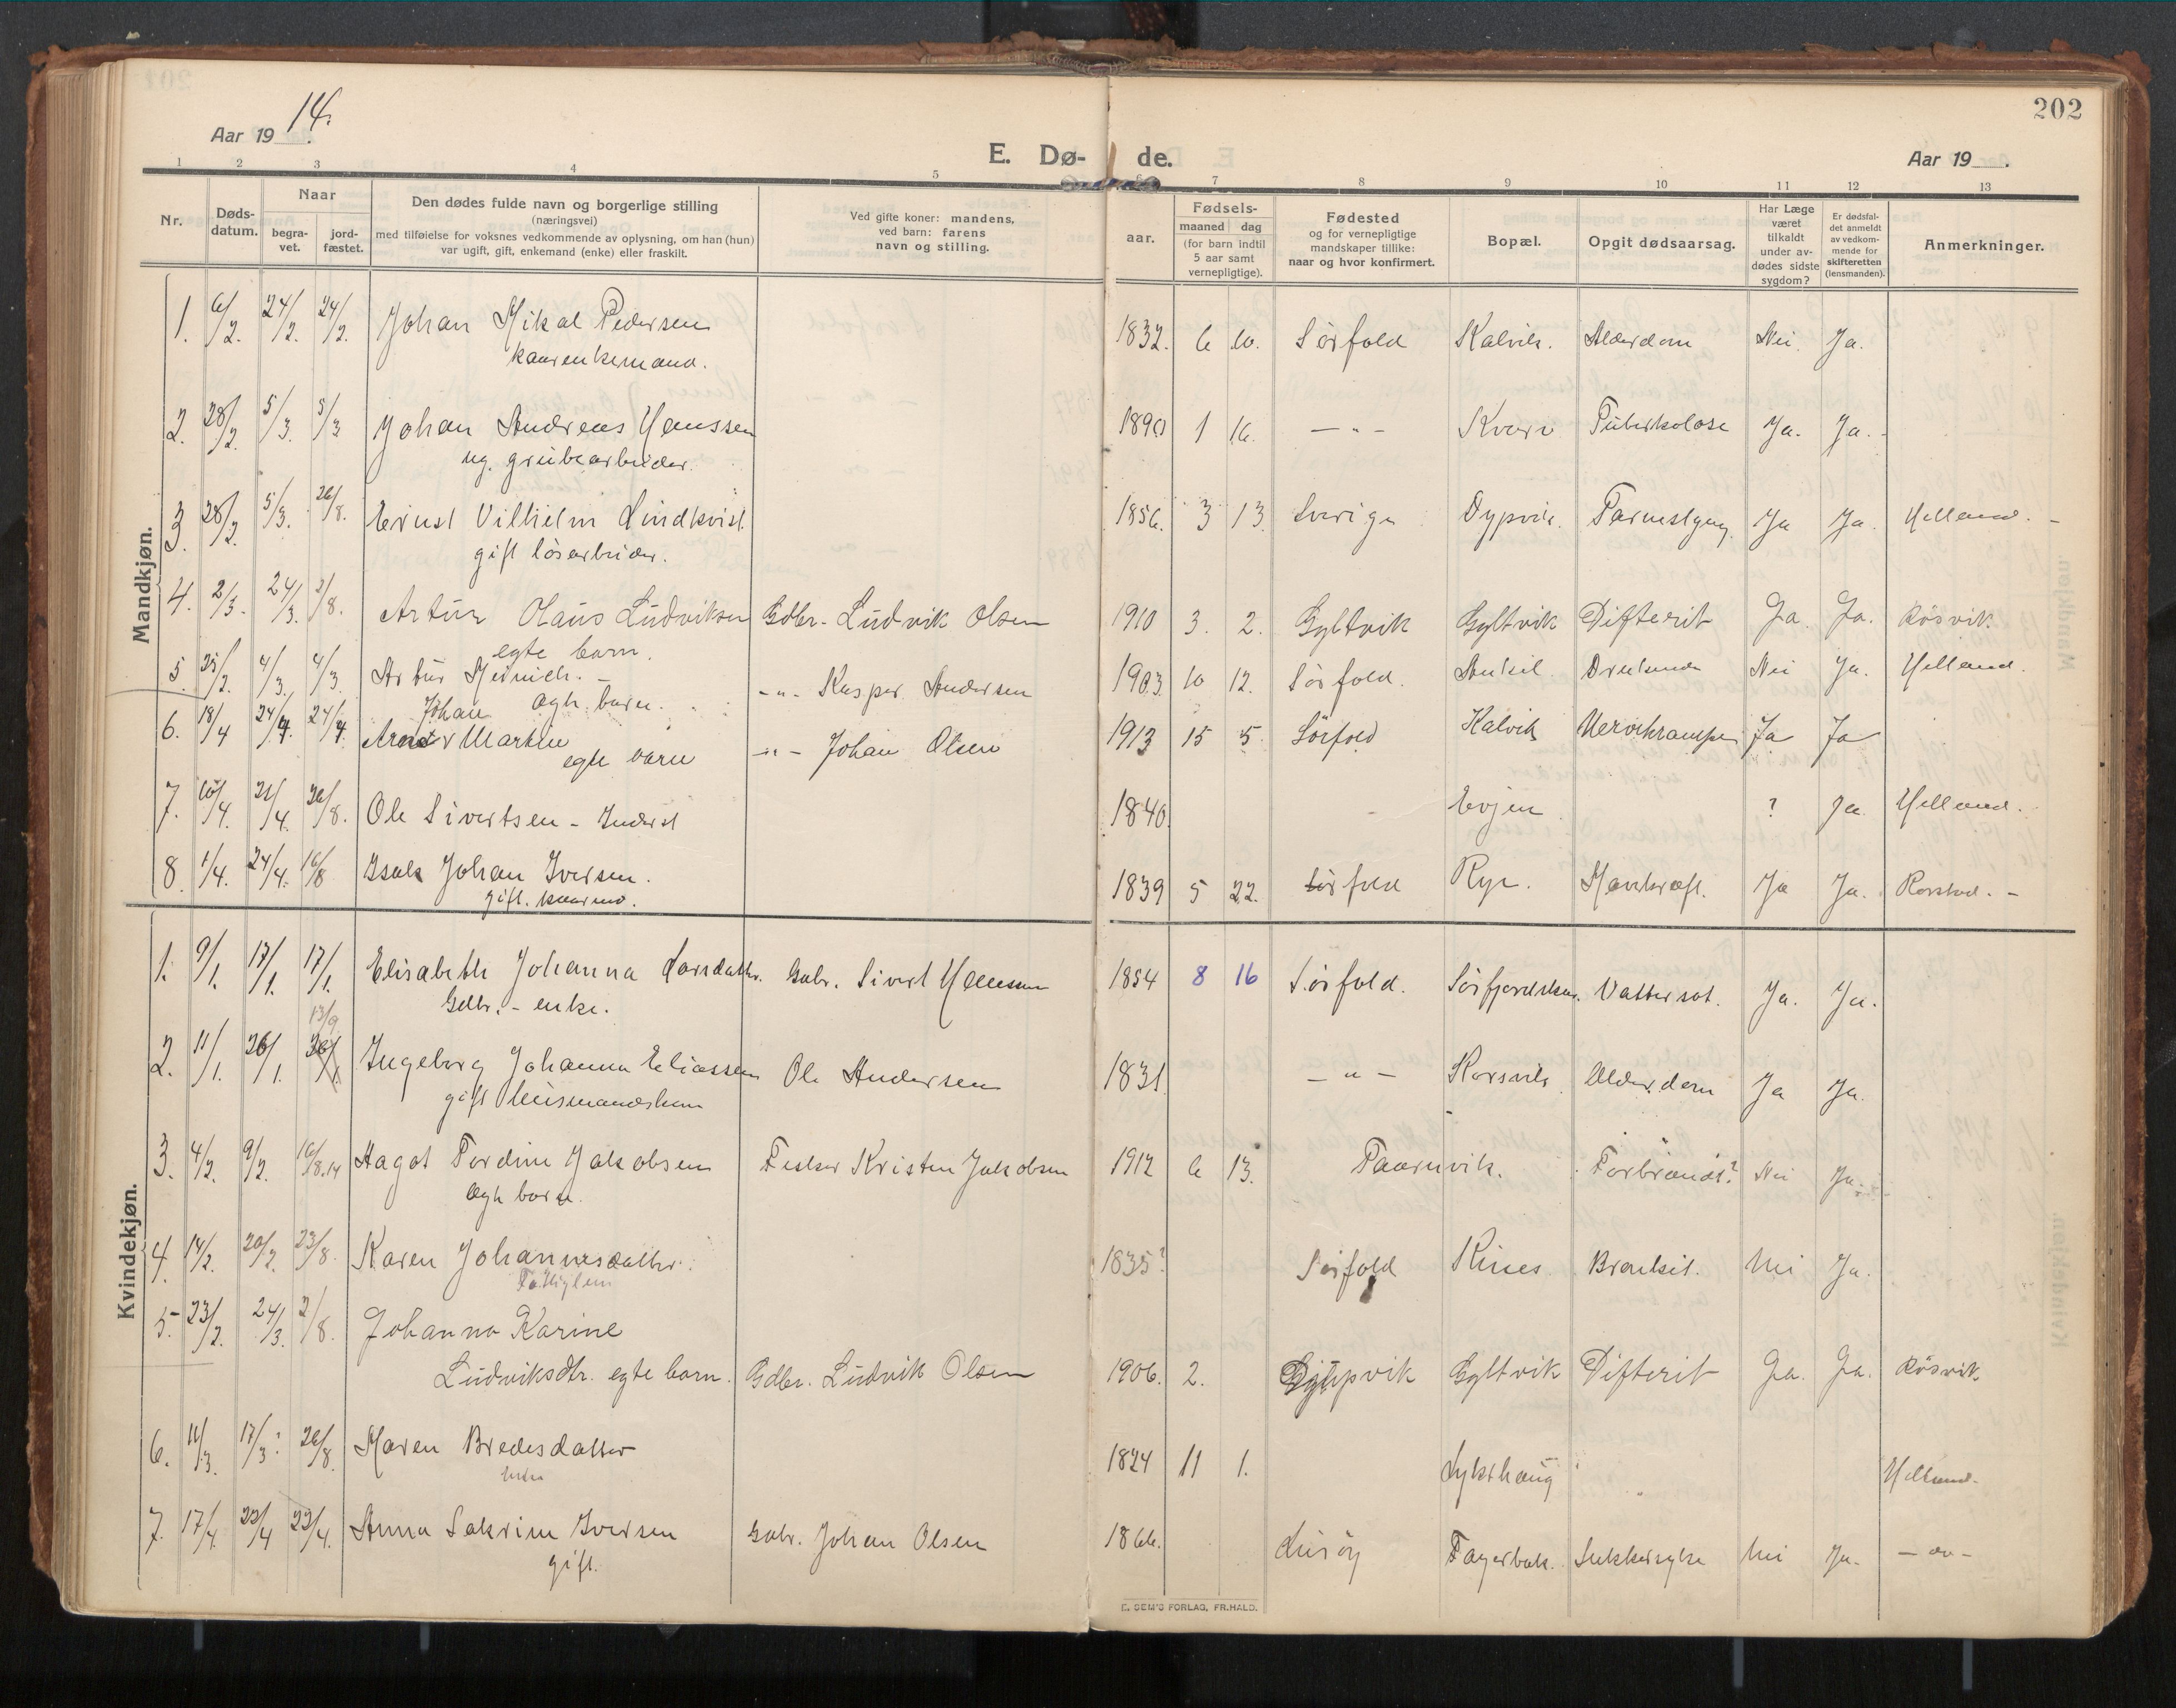 202
Aar 19 14.
E. Dø- de.
Aar 19 .
1 2 3 4 5 6 7 8 9 10 11 12 13
Nr. Døds-datum. Naar begra-vet. jord-fæstet. Den dødes fulde navn og borgerlige stilling (næringsvei) med tilføielse for voksnes vedkommende av oplysning, om han (hun) var ugift, gift, enkemand (enke) eller fraskilt. Ved gifte koner: mandens, ved barn: farens navn og stilling. aar. Fødsels- maaned dag (for barn indtil 5 aar samt vernepligtige). Fødested og for vernepligtige mandskaper tillike: naar og hvor konfirmert. Bopæl. Opgit dødsaarsag. Har Læge været tilkaldt under av-dødes sidste sygdom? Er dødsfal-det anmeldt av vedkom-mende for skifteretten (lensmanden). Anmerkninger.
Mandkjøn.
1. 6/2. 24/2. 24/2. Johan Mikal Pedersen 1832. 6 10. Sörfold Kalvik. Alderdom Nei. Ja.
kaarenkemand.
2. 28/2. 5/3. 5/3 Johan Andreas Hanssen 1890 1 16. — " — Kvarv Tuberkolose Ja. Ja.
ug. grubearbeider.
3. 28/2. 5/3. 26/8. Ernst Vilhelm Lindkvist 1856. 3 13. Sverige Dypvik. Ja Ja. Helland. -
gift lösarbeider.
4. 2/3. 24/3. 2/8. Artur Olaus Ludviksen Gdbr. Ludvik Olsen 1910 3. 2. Gyltvik Gyltvik Difterit Ja. Ja. Rösvik
egte barn.
5. 25/2. 4/3. 4/3. Artur -"- Kasper Andersen 1903. 10 12. Sörfold. Nei Ja. Helland.
Johan Ægte barn.
6. 18/4 24/4. 24/4. Martin -"- Johan Olsen 1913 15 5. Sörfold Kalvik Ja Ja
egte barn
7. 10/4. 21/4. 26/8. Ole Sivertsen - Inderst 1840. Evjen ? Ja. Helland.
8. 1/4. 24/4. 16/8 Isak Johan Iversen. 1839 5 22. Sörfold Ja Ja. Rorstad. -
gift. kaarmd.
Kvindekjøn.
1. 9/1. 17/1. 17/1. Elisabeth Johanna Larsdatter. Gabr. Sivert Hanssen 1854 8 16 Sörfold. Vattersot. Ja. Ja.
Gdbr. - enke.
13/9
2. 11/1. 26/1. 26/1. Ingeborg Johanna Eliassen Ole Andersen 1831. — " — Korsvik Alderdom Ja Ja.
gift husmandskone
3. 4/2. 9/2. 16/8.14 Hagot Fordine Jakobsen Fisker Kristen Jakobsen 1912 6 13. Forbrændt? Nei Ja.
Ægte barn.
4. 14/2. 20/2. 23/8. Karen Johannesdatter. 1835? Sörfold Kines Nei Ja.
Fattiglem
5. 23/2. 24/3. 2/8. Johanna Karine
Ludviksdtr. egte barn. Gdbr. Ludvik Olsen 1906. 2. Djupvik Gyltvik Difterit Ja. Ja. Rösvik
6. 11/3. 17/3? 26/8. Maren Bredesdatter 1824 11 1. Helland.
enke
7. 17/4. 22/4 22/4. Anna Sakrine Iversen Gabr. Johan Olsen 1866. Lurøy Fagerbak. Sukkersyke Nei Ja. — " —
gift.
E. SEM'S FORLAG, FR.HALD.